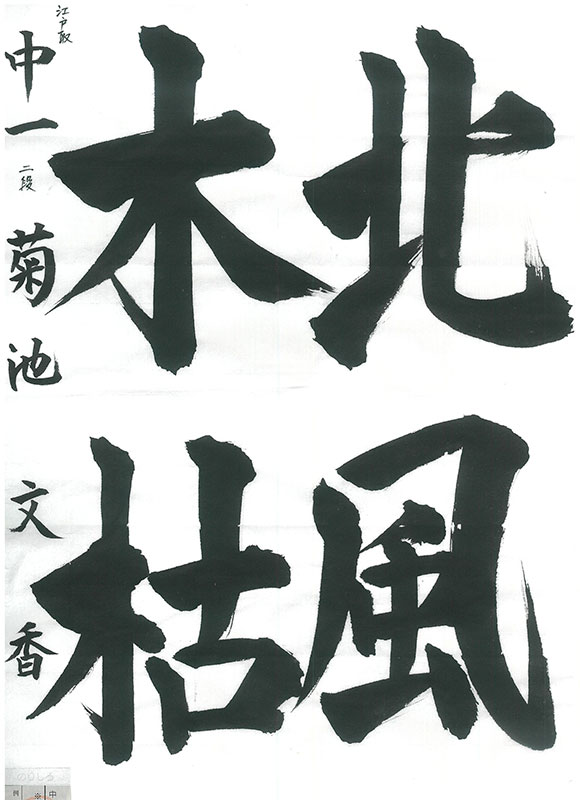 北風
木枯
江戸取
中一 二段 菊池 文香
のりしろ
※ 中